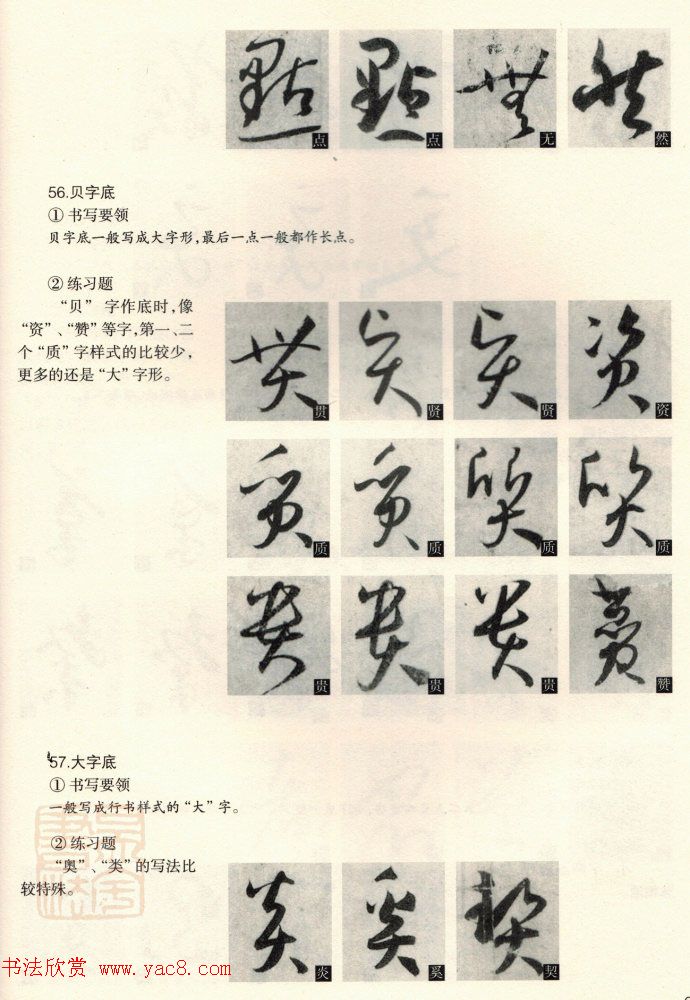 点 点 无 然
56.贝字底
① 书写要领
贝字底一般写成大字形,最后一点一般都作长点。
② 练习题
“贝” 字作底时,像
“资”、“赞”等字,第一、二
个“质”字样式的比较少,
更多的还是“大”字形。
贯 贤 贤 资
质 质 质 质
贵 贵 贵 赞
57.大字底
① 书写要领
一般写成行书样式的“大”字。
② 练习题
“奥”、“类”的写法比
较特殊。
炎 奚 契
书法欣赏 www.yac8.com